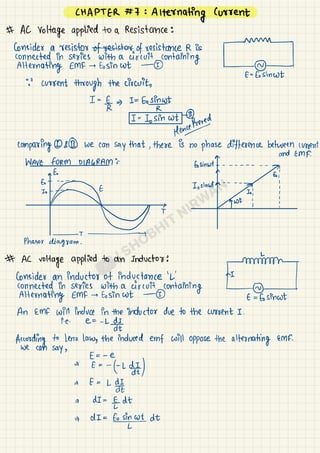 CHAPTER #7: Alternating Current
* AC Voltage applied to a Resistance:
Consider a resistor of resistor of resistance R is
connected in series with a circuit containing
Alternating EMF → E₀ sin ωt — ①
E = E₀ sin ωt
∵ current through the circuit,
I = E/R ⇒ I = E₀ sin ωt / R
I = I₀ sin ωt — ②
Hence Proved
comparing ① & ② we can say that, there is no phase difference between current
and EMF.
WAVE FORM DIAGRAM:-
E₀ sin ωt
E₀
I₀ sin ωt
I₀
ωt
E₀
I₀
E
T
T
Phasor diagram.
SHOBHIT NIRWAN
* AC voltage applied to an Inductor:
L
Consider an inductor of inductance 'L'
connected in series with a circuit containing
Alternating EMF → E₀ sin ωt — ①
I
E = E₀ sin ωt
An EMF will induce in the inductor due to the current I.
i.e. e = -L dI/dt
According to lenz law, the induced emf will oppose the alternating emf.
we can say,
E = -e
⇒ E = -(-L dI/dt)
⇒ E = L dI/dt
⇒ dI = E/L dt
⇒ dI = E₀ sin ωt / L dt